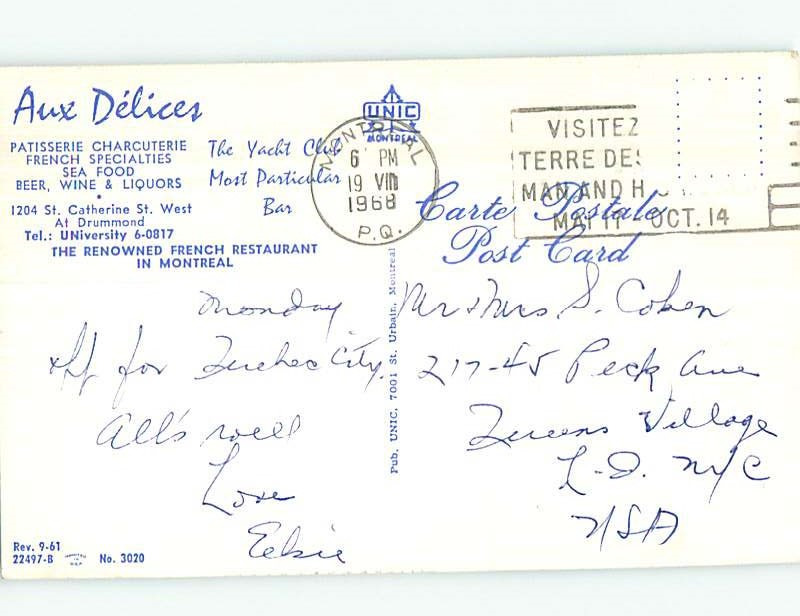 Aux Délices
PATISSERIE CHARCUTERIE
FRENCH SPECIALTIES
SEA FOOD
BEER, WINE & LIQUORS
•
1204 St. Catherine St. West
At Drummond
Tel.: UNiversity 6-0817
The Yacht Club
Most Particular
Bar
THE RENOWNED FRENCH RESTAURANT
IN MONTREAL
UNIC
MONTREAL
MONTREAL
6 PM
19 VIII
1968
P.Q.
VISITEZ
TERRE DES
MAN AND H
MAI 17 OCT. 14
Carte Postale
Post Card
Monday
off for Quebec City.
All's well
Love
Elsie
Pub. UNIC, 7001 St. Urbain, Montreal
Mr & Mrs S. Cohen
217-45 Peck Ave
Queens Village
L.I. NYC
USA
Rev. 9-61
22497-B
No. 3020